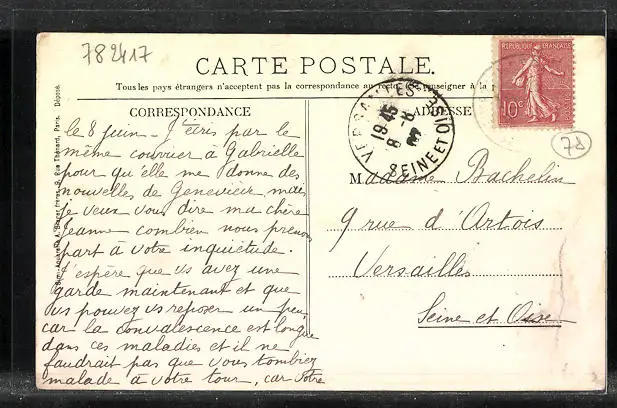 782417
CARTE POSTALE.
Tous les pays étrangers n'acceptent pas la correspondance au recto, se renseigner à la p
CORRESPONDANCE
ADRESSE
REPUBLIQUE FRANÇAISE
10c
VERSAILLES
19 45
8 -6
SEINE ET OISE
78
le 8 juin - J'écris par le
même courrier à Gabrielle
pour qu'elle me donne des
nouvelles de Geneviève mais
je veux vous dire ma chère
Jeanne combien nous prenons
part à votre inquiétude.
J'espère que vs avez une
garde maintenant et que
vs pouvez vs reposer un peu,
car la convalescence est longue
dans ces maladies et il ne
faudrait pas que vous tombiez
malade à votre tour, car votre
Madame Bachelin
9 rue d'Artois
Versailles
Seine et Oise
frères, 9, Rue Thénard, Paris. Déposé.